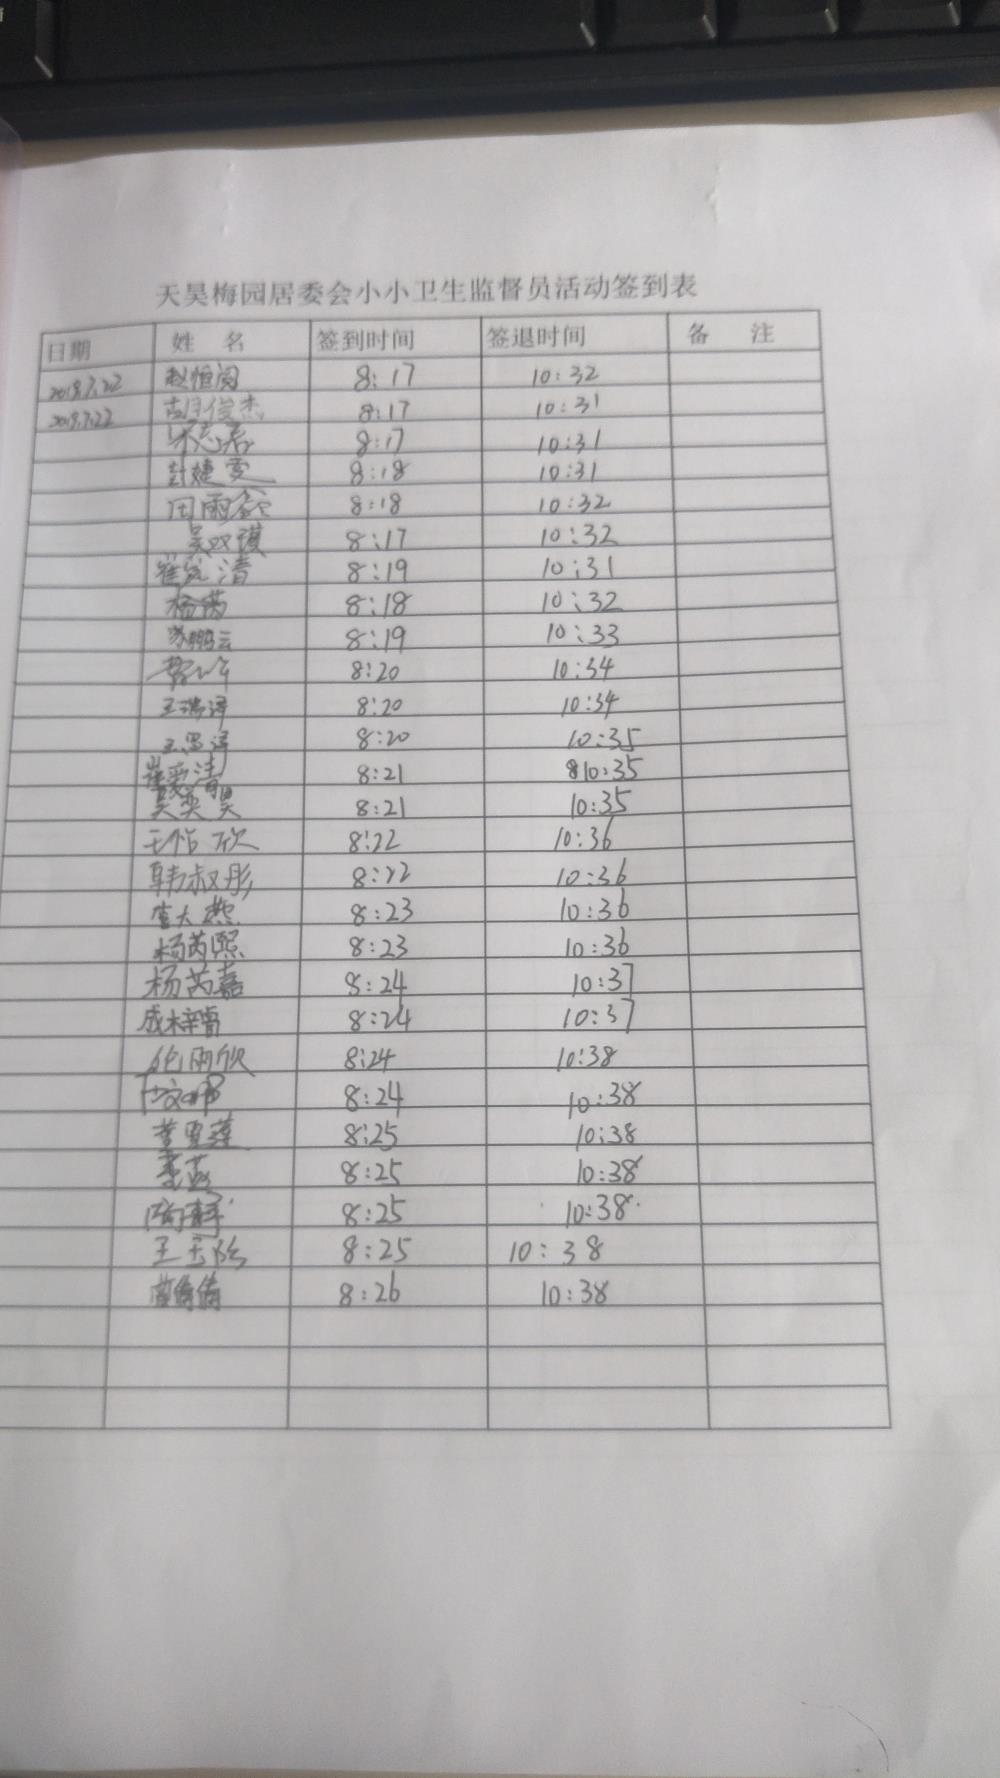 天昊梅园居委会小小卫生监督员活动签到表
日期 姓 名 签到时间 签退时间 备 注
2019.7.22 赵恒阅 8:17 10:32
2019.7.22 胡俊杰 8:17 10:31
8:17 10:31
封婕雯 8:18 10:31
田雨 8:18 10:32
吴双祺 8:17 10:32
清 8:19 10:31
杨 8:18 10:32
苏鹏云 8:19 10:33
8:20 10:34
王瑞泽 8:20 10:34
王思泽 8:20 10:35
崔爱清 8:21 810:35
吴奕昊 8:21 10:35
王怡欣 8:22 10:36
韩叔彤 8:22 10:36
李大燕 8:23 10:36
杨芮熙 8:23 10:36
杨芮嘉 8:24 10:37
成梓睿 8:24 10:37
雨欣 8:24 10:38
8:24 10:38
董雪莲 8:25 10:38
8:25 10:38
陶 8:25 10:38
王玉 8:25 10:38
8:26 10:38